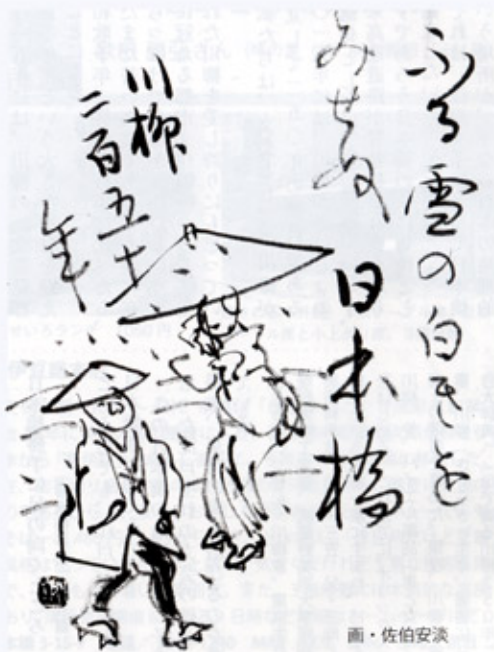 ふる雪の白きを
みせぬ
日本橋
川柳
二百五十
年
画・佐伯安淡